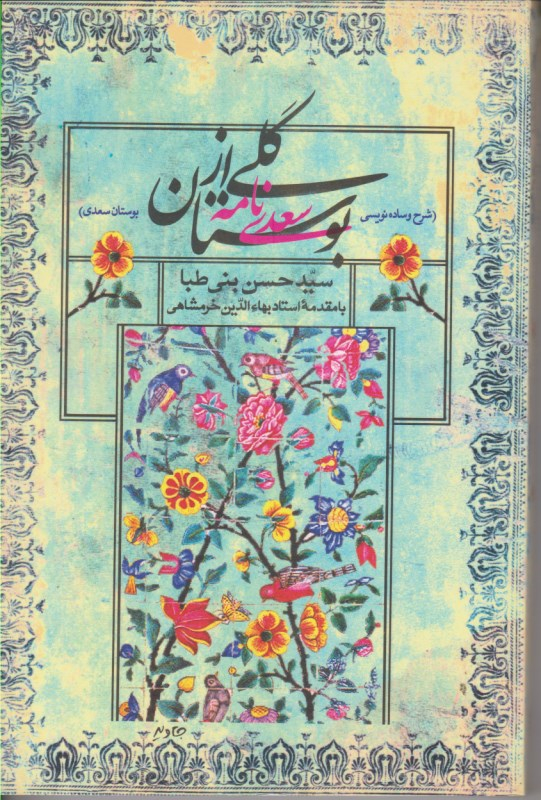 گلی از
بوستان
سعدی نامه
(شرح و ساده نویسی بوستان سعدی)
سیّد حسن بنی طبا
با مقدمهٔ استاد بهاء الدّین خرمشاهی